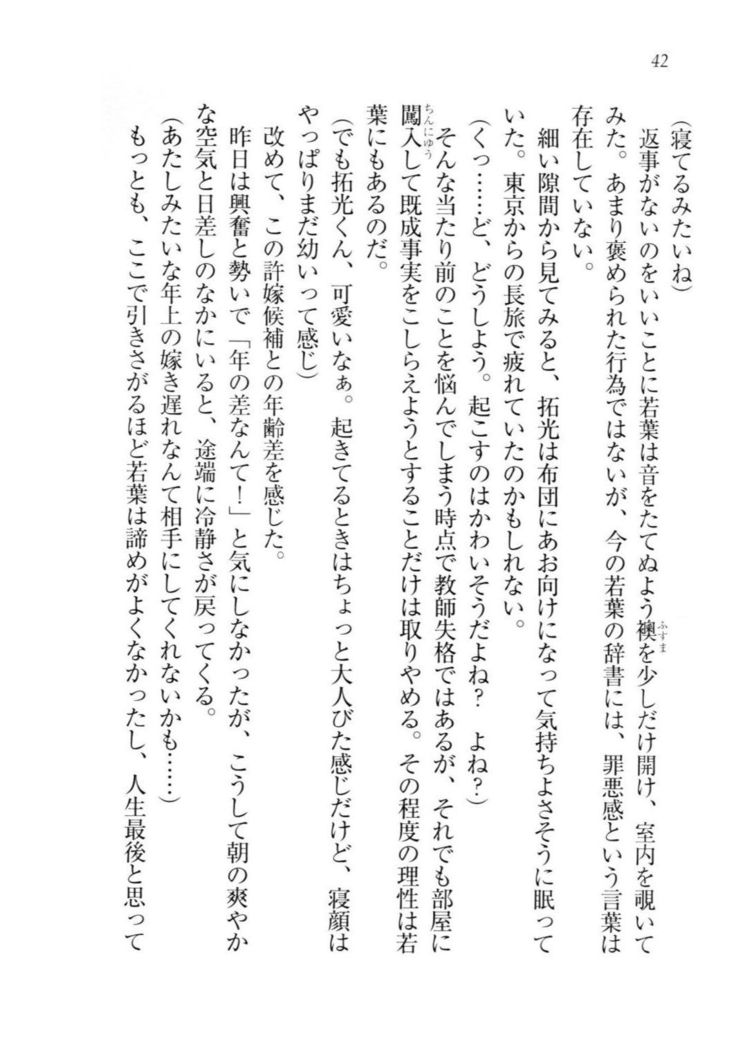 42
(寝てるみたいね)
返事がないのをいいことに若葉は音をたてぬよう襖を少しだけ開け、室内を覗いて
ふすま
みた。あまり褒められた行為ではないが、今の若葉の辞書には、罪悪感という言葉は
存在していない。
細い隙間から見てみると、拓光は布団にあお向けになって気持ちよさそうに眠って
いた。東京からの長旅で疲れていたのかもしれない。
(くっ……ど、どうしよう。起こすのはかわいそうだよね? よね?)
そんな当たり前のことを悩んでしまう時点で教師失格ではあるが、それでも部屋に
闖入して既成事実をこしらえようとすることだけは取りやめる。その程度の理性は若
ちんにゅう
葉にもあるのだ。
(でも拓光くん、可愛いなぁ。起きてるときはちょっと大人びた感じだけど、寝顔は
やっぱりまだ幼いって感じ)
改めて、この許嫁候補との年齢差を感じた。
昨日は興奮と勢いで「年の差なんて!」と気にしなかったが、こうして朝の爽やか
な空気と日差しのなかにいると、途端に冷静さが戻ってくる。
(あたしみたいな年上の嫁き遅れなんて相手にしてくれないかも……)
もっとも、ここで引きさがるほど若葉は諦めがよくなかったし、人生最後と思って